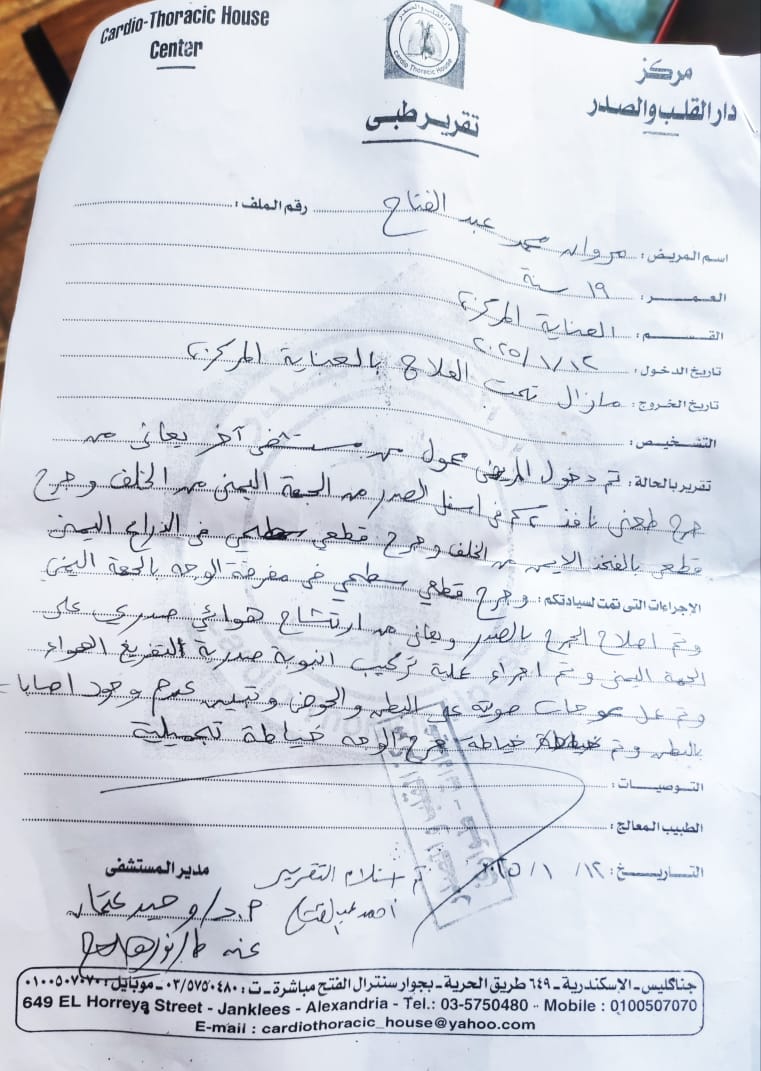 Cardio-Thoracic House
Center
دار القلب والصدر
Cardio Thoracic House
مركز
دار القلب والصدر
تقرير طبى
اسم المريض: مروان محمد عبد الفتاح رقم الملف:
العمر: ١٩ سنة
القسم: العناية المركزة
تاريخ الدخول: ٢٠٢٥/١/١٢
تاريخ الخروج: مازال تحت العلاج بالعناية المركزة
التشخيص:
تقرير بالحالة: تم دخول المريض محول من مستشفى آخر يعانى من
جرح طعنى نافذ ٢ كم فى اسفل الصدر من الجهة اليمنى من الخلف وجرح
قطعى بالفخذ الايمن من الخلف وجرح قطعى سطحي فى الذراع اليمنى
الإجراءات التى تمت لسيادتكم: وجرح قطعي سطحي فى الوجه بالجهة اليمنى
وتم اصلاح الجرح بالصدر ويعانى من ارتشاح هوائي صدري على
الجهة اليمنى وتم اجراء عملية تركيب انبوبة صدرية لتفريغ الهواء
وتم عمل موجات صوتية على البطن والحوض وتبين عدم وجود اصابات
بالبطن وتم خياطة جرح الوجه خياطة تجميلية
التوصيات:
الطبيب المعالج:
التاريخ: ١٢ / ١ / ٢٠٢٥
تم استلام التقرير
احمد عبد الفتاح
مدير المستشفى
م.د/ وحيد عثمان
عنه ط/
جناكليس - الإسكندرية - ٦٤٩ طريق الحرية - بجوار سنترال الفتح مباشرة - ت: ٠٣/٥٧٥٠٤٨٠ - موبايل: ٠١٠٠٥٠٧٠٧٠
649 EL Horreya Street - Janklees - Alexandria - Tel.: 03-5750480 - Mobile : 0100507070
E-mail : cardiothoracic_house@yahoo.com